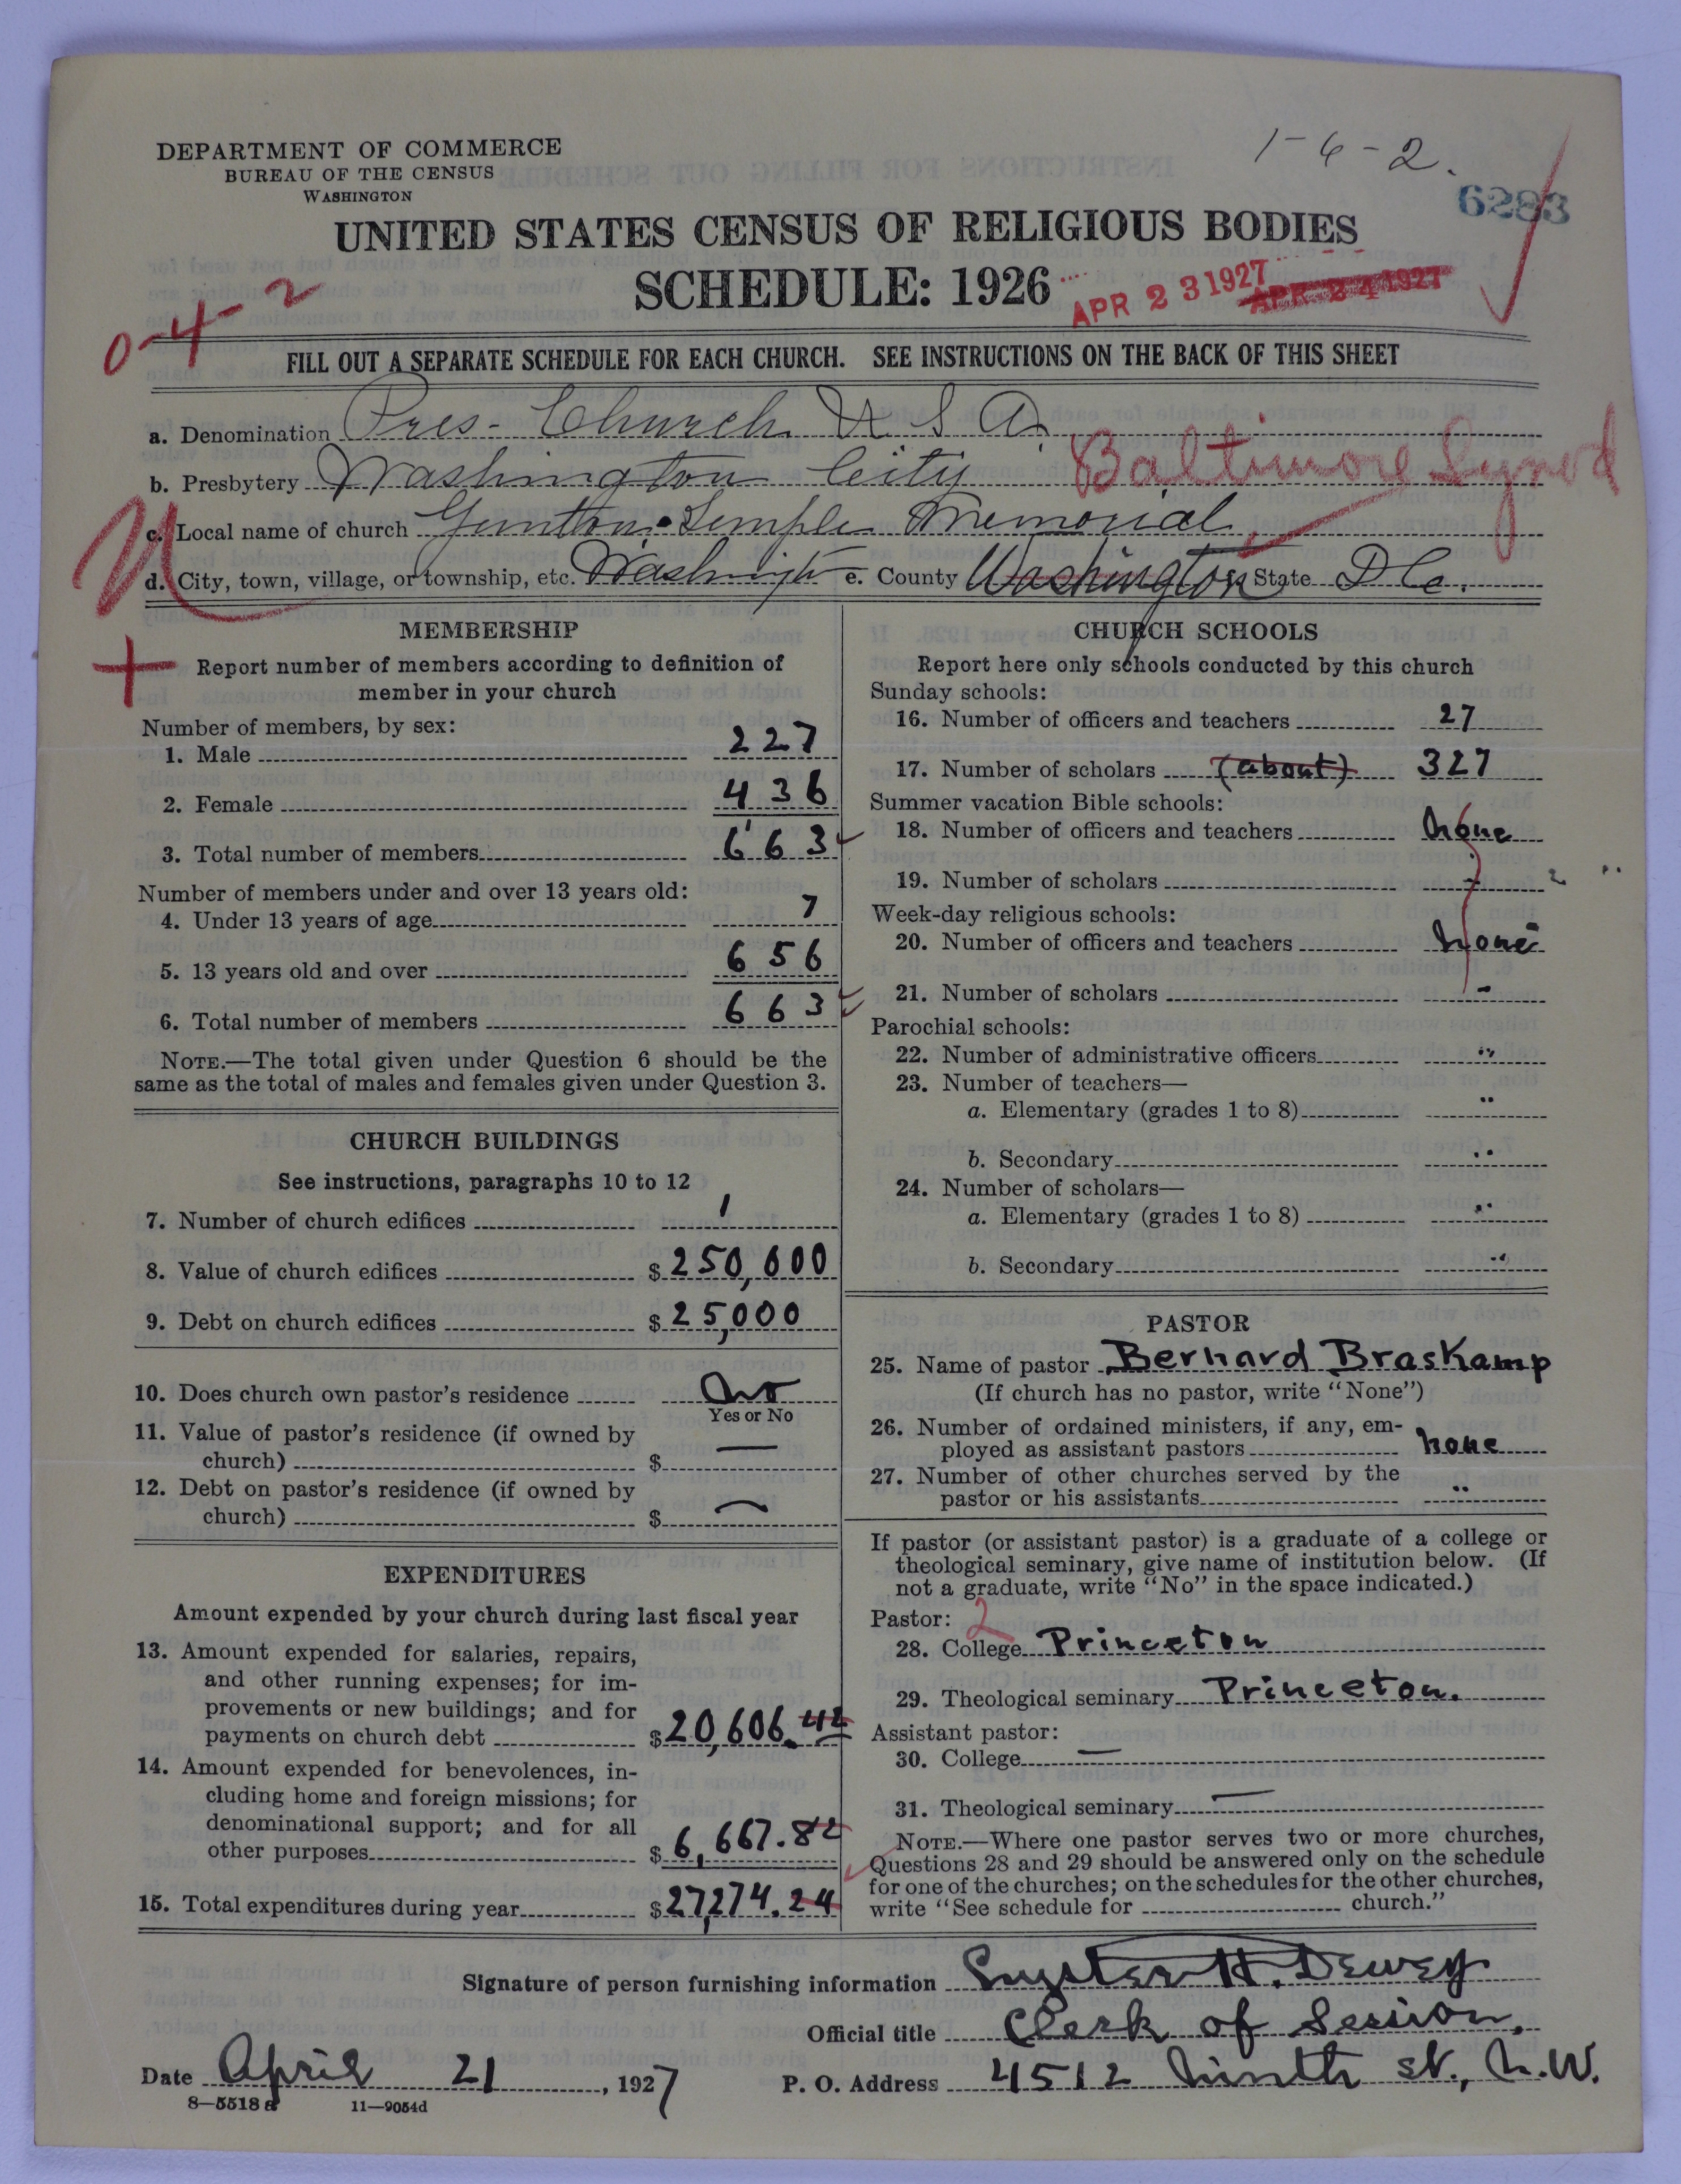 DEPARTMENT OF COMMERCE
BUREAU OF THE CENSUS
WASHINGTON
1-6-2.
6283
UNITED STATES CENSUS OF RELIGIOUS BODIES
SCHEDULE: 1926
APR 23 1927 APR 24 1927
0-4-2
FILL OUT A SEPARATE SCHEDULE FOR EACH CHURCH. SEE INSTRUCTIONS ON THE BACK OF THIS SHEET
a. Denomination Pres- Church U S A
b. Presbytery Washington City Baltimore Synod
c. Local name of church Gunton-Temple Memorial
d. City, town, village, or township, etc. Washington e. County Washington State D C.
MEMBERSHIP
Report number of members according to definition of
member in your church
Number of members, by sex:
1. Male 227
2. Female 436
3. Total number of members 663
Number of members under and over 13 years old:
4. Under 13 years of age 7
5. 13 years old and over 656
6. Total number of members 663
NOTE.—The total given under Question 6 should be the
same as the total of males and females given under Question 3.
CHURCH BUILDINGS
See instructions, paragraphs 10 to 12
7. Number of church edifices 1
8. Value of church edifices $250,600
9. Debt on church edifices $25,000
10. Does church own pastor's residence No
Yes or No
11. Value of pastor's residence (if owned by
church) $ —
12. Debt on pastor's residence (if owned by
church) $ —
EXPENDITURES
Amount expended by your church during last fiscal year
13. Amount expended for salaries, repairs,
and other running expenses; for im-
provements or new buildings; and for
payments on church debt $20,606.42
14. Amount expended for benevolences, in-
cluding home and foreign missions; for
denominational support; and for all
other purposes $6,667.82
15. Total expenditures during year $27,274.24
CHURCH SCHOOLS
Report here only schools conducted by this church
Sunday schools:
16. Number of officers and teachers 27
17. Number of scholars (about) 327
Summer vacation Bible schools:
18. Number of officers and teachers none
19. Number of scholars -
Week-day religious schools:
20. Number of officers and teachers none
21. Number of scholars -
Parochial schools:
22. Number of administrative officers "
23. Number of teachers—
a. Elementary (grades 1 to 8) "
b. Secondary "
24. Number of scholars—
a. Elementary (grades 1 to 8) "
b. Secondary "
PASTOR
25. Name of pastor Bernard Braskamp
(If church has no pastor, write "None")
26. Number of ordained ministers, if any, em-
ployed as assistant pastors none
27. Number of other churches served by the
pastor or his assistants "
If pastor (or assistant pastor) is a graduate of a college or
theological seminary, give name of institution below. (If
not a graduate, write "No" in the space indicated.)
Pastor: 2
28. College Princeton
29. Theological seminary Princeton.
Assistant pastor:
30. College —
31. Theological seminary —
NOTE.—Where one pastor serves two or more churches,
Questions 28 and 29 should be answered only on the schedule
for one of the churches; on the schedules for the other churches,
write "See schedule for church."
Signature of person furnishing information Lyster H. Dewey
Official title Clerk of Session.
Date April 21, 1927 P. O. Address 4512 Ninth St., N.W.
8—5518 a 11—9054d